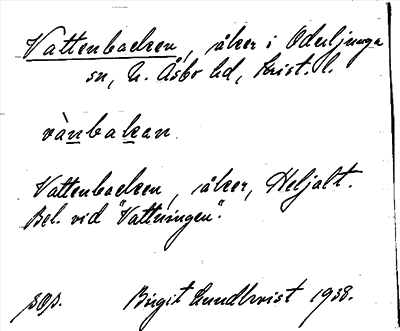 Vattenbacken, åker i Oderljunga
sn, N. Åsbo hd, Krist. l.
vànbakan.
Vattenbacken, åker, Heljalt.
Bel. vid "Vattningen".
pop. Birgit Lundkvist 1938.